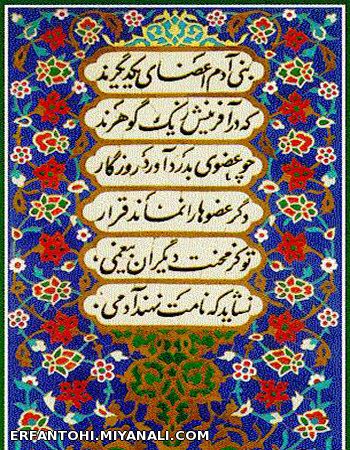 بنی آدم اعضای یکدیگرند
که در آفرینش ز یک گوهرند
چو عضوی بدرد آورد روزگار
دگر عضوها را نماند قرار
تو کز محنت دیگران بیغمی
نشاید که نامت نهند آدمی
ERFANTOHI.MIYANALI.COM